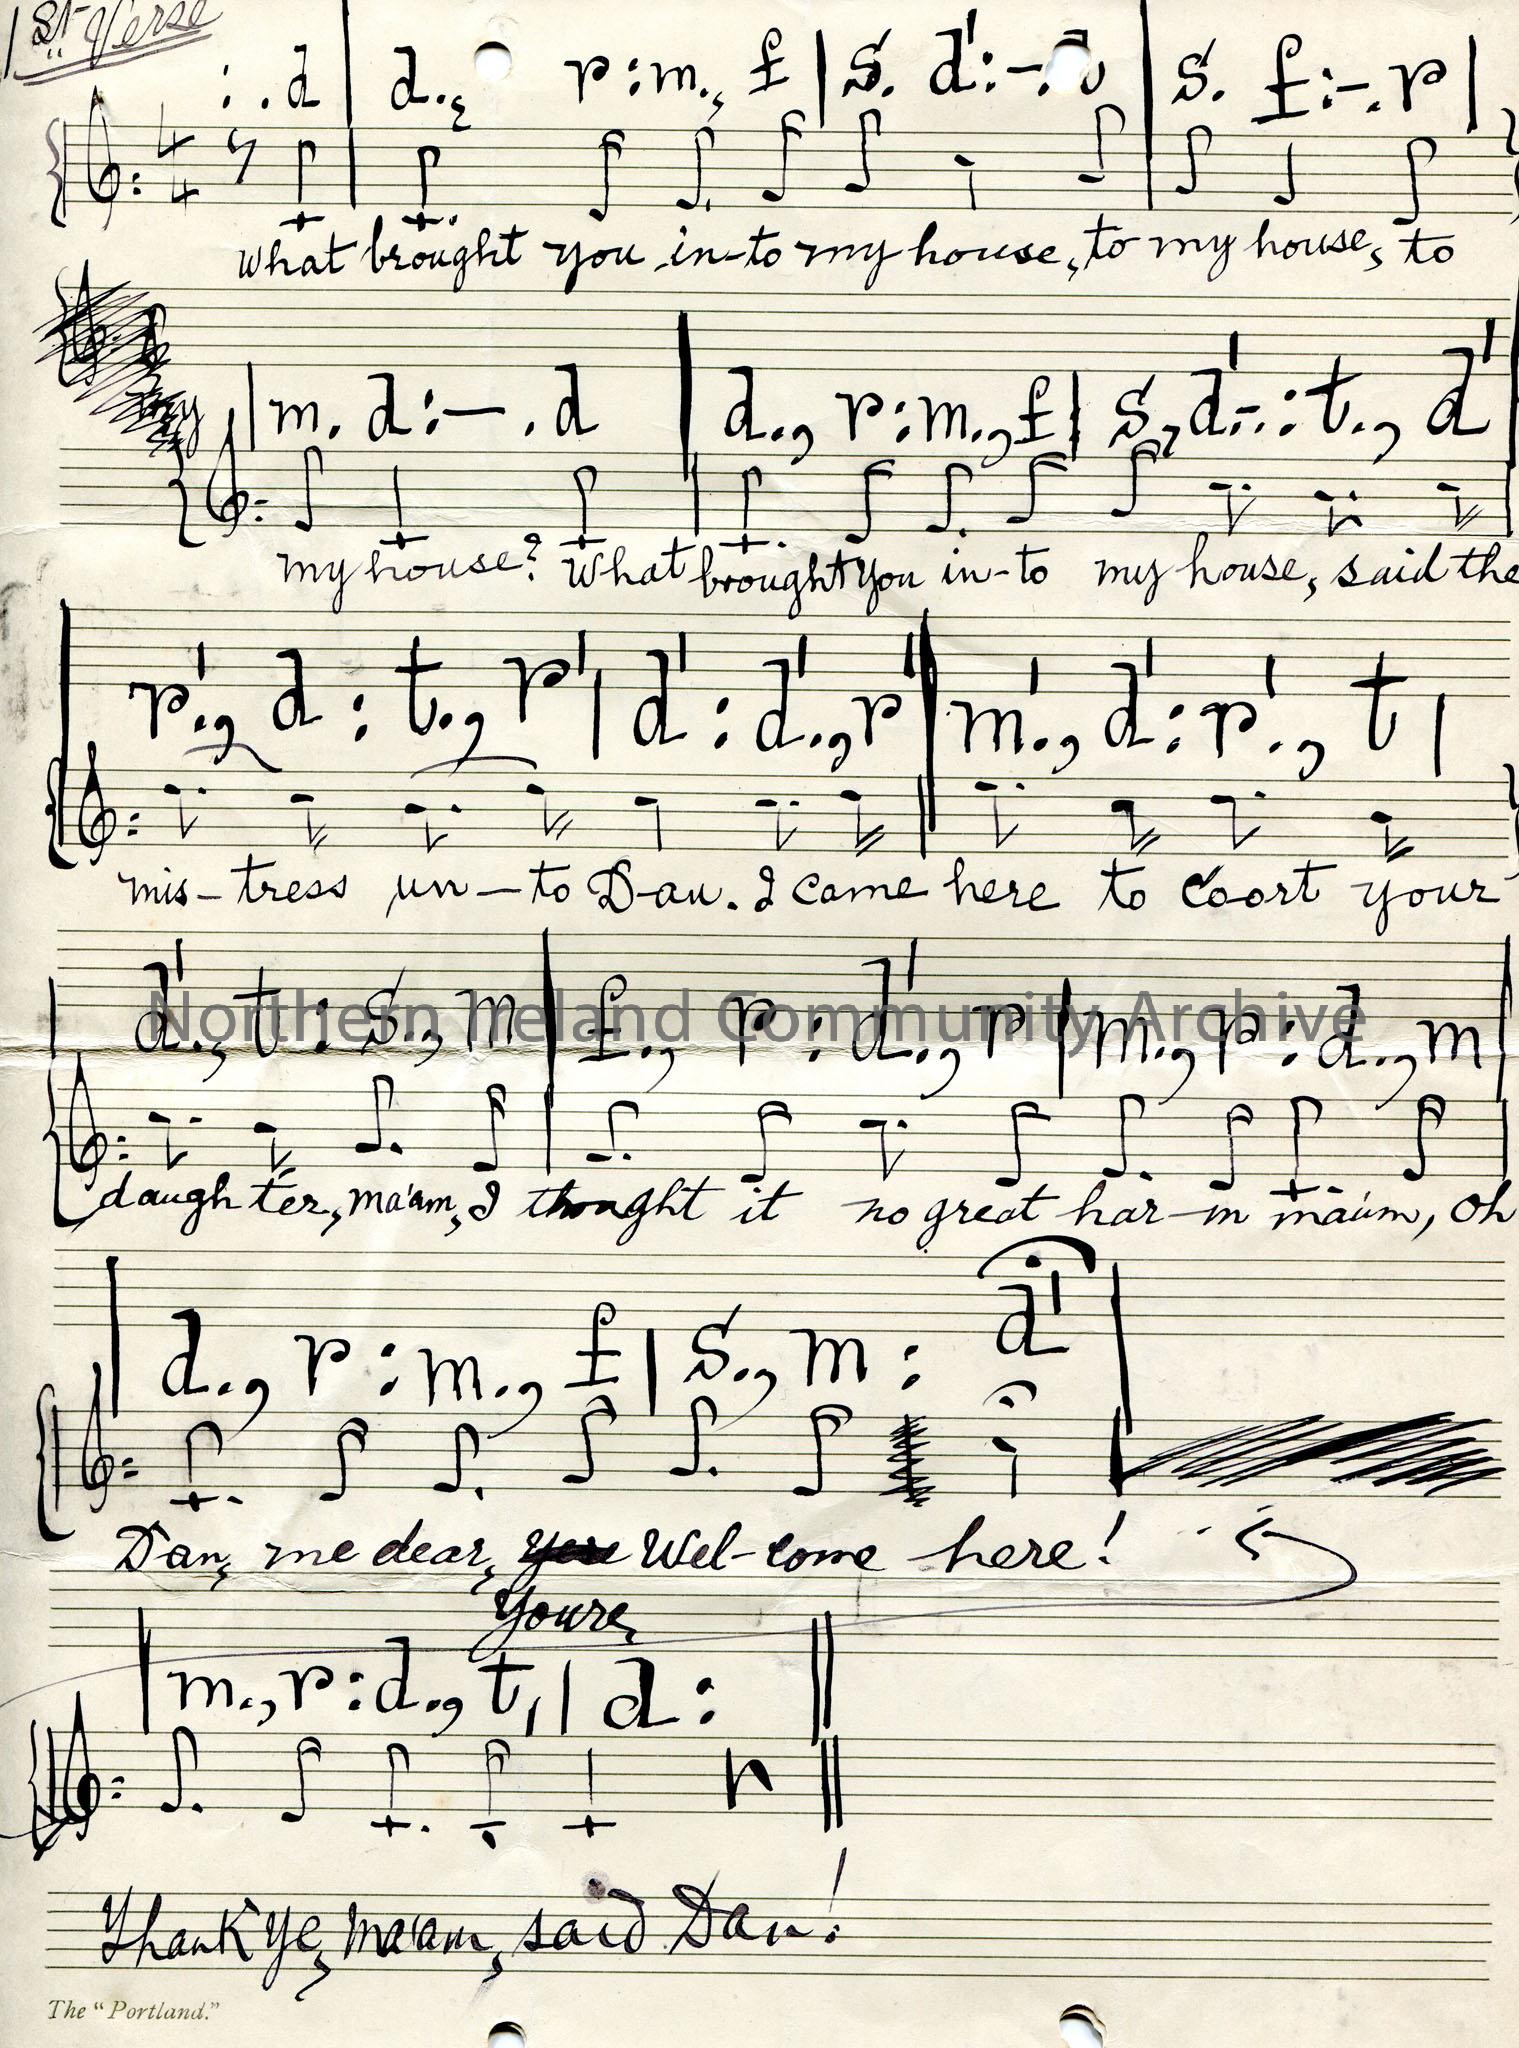 1st Verse
: . d | d . , r : m . , f | s . d' : - . d | s . f : - . r |
4 4
What brought you in-to my house, to my house, to
| m . d : - . d | d . , r : m . , f | s , d' - . : t . , d'
my house? What brought you in-to my house, said the
r' . , d : t . , r' | d' : d' . , r' | m' . , d' : r' . , t |
mis-tress un-to Dan. I came here to Coort your
d' . , t : s . , m | f . , r : d' . , r | m . , r : d . , m
Northern Ireland Community Archive
daughter, ma'am, I thought it no great har-m ma'am, Oh
d . , r : m . , f | s . , m : d' |
Dan, me dear, Wel-come here!
You're,
| m . , r : d . , t, | d : ||
Thank ye, Ma'am, said Dan!
The "Portland."